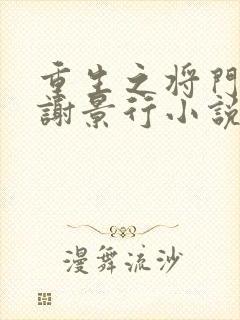 重生之将門
謝景行小說
漫舞流沙